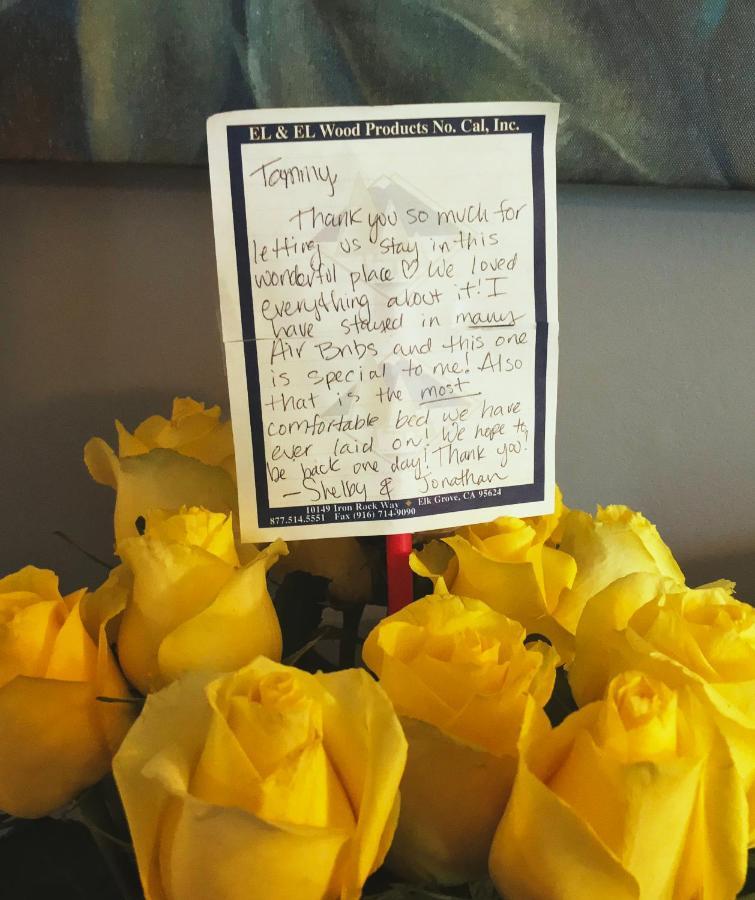 EL & EL Wood Products No. Cal, Inc.
Tammy,
Thank you so much for
letting us stay in this
wonderful place ♡ We loved
everything about it! I
have stayed in many
Air Bnbs and this one
is special to me! Also
that is the most
comfortable bed we have
ever laid on! We hope to
be back one day! Thank you!
— Shelby & Jonathan
10149 Iron Rock Way ◆ Elk Grove, CA 95624
877.514.5551 Fax (916) 714-9090